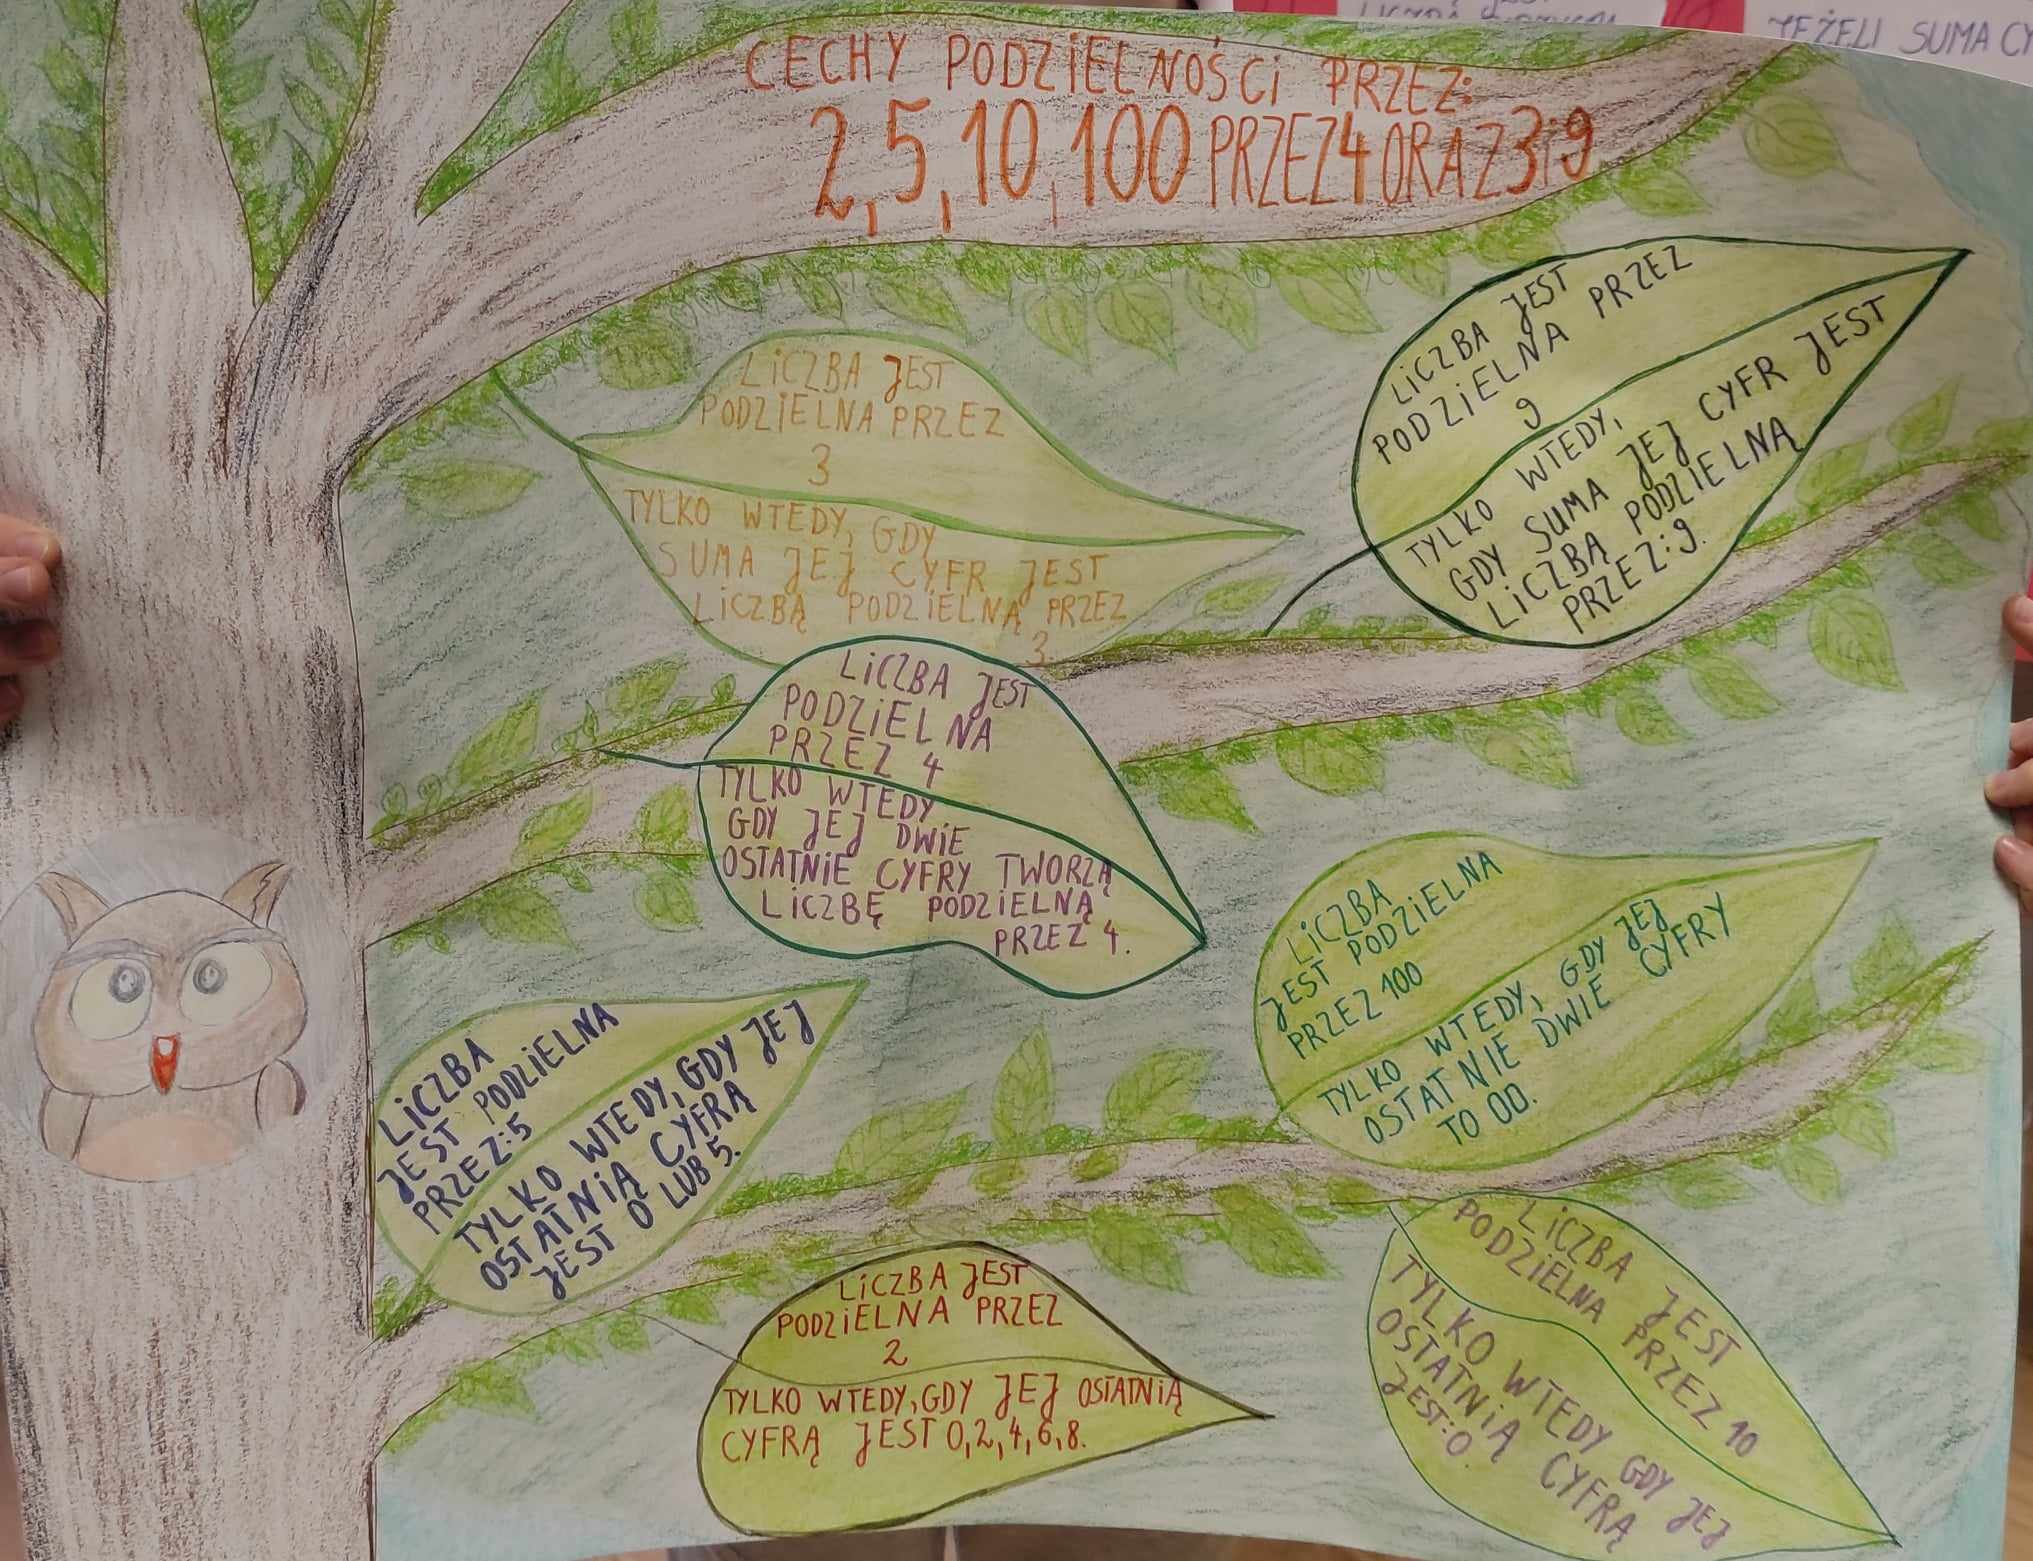 JEŻELI SUMA CY
CECHY PODZIELNOŚCI PRZEZ:
2, 5, 10, 100 PRZEZ 4 ORAZ 3 i 9
LICZBA JEST
PODZIELNA PRZEZ
3
TYLKO WTEDY, GDY
SUMA JEJ CYFR JEST
LICZBĄ PODZIELNĄ PRZEZ
3.
LICZBA JEST
PODZIELNA PRZEZ
9
TYLKO WTEDY,
GDY SUMA JEJ CYFR JEST
LICZBA PODZIELNĄ
PRZEZ: 9.
LICZBA JEST
PODZIELNA
PRZEZ 4
TYLKO WTEDY
GDY JEJ DWIE
OSTATNIE CYFRY TWORZĄ
LICZBĘ PODZIELNĄ
PRZEZ 4.
LICZBA
JEST PODZIELNA
PRZEZ 100
TYLKO WTEDY, GDY JEJ
OSTATNIE DWIE CYFRY
TO 00.
LICZBA
JEST PODZIELNA
PRZEZ: 5
TYLKO WTEDY, GDY JEJ
OSTATNIĄ CYFRĄ
JEST 0 LUB 5.
LICZBA JEST
PODZIELNA PRZEZ
2
TYLKO WTEDY, GDY JEJ OSTATNIĄ
CYFRĄ JEST 0, 2, 4, 6, 8.
LICZBA JEST
PODZIELNA PRZEZ 10
TYLKO WTEDY GDY JEJ
OSTATNIĄ CYFRĄ
JEST: 0.